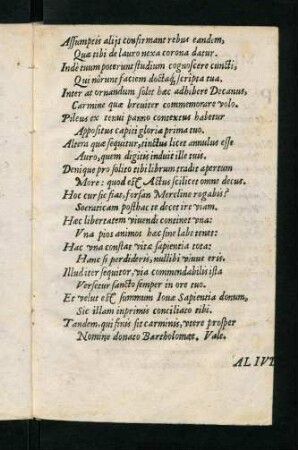 Assumptis alijs confirmant rebus eandem,
Quæ tibi de lauro nexa corona datur.
Inde tuum poterunt studium cognoscere cuncti,
Qui nôrunt faciem doctaq́; scripta tua.
Inter at ornandum solet hæc adhibere Decanus,
Carmine quæ breuiter commemorare volo.
Pileus ex tenui panno contextus habetur
Appositus capiti gloria prima tuo.
Altera quæ sequitur, tinctus licet annulus esse
Auro, quem digitis induit ille tuis.
Denique pro solito tibi librum tradit apertum
More: quod est Actus scilicet omne decus.
Hoc cur sic fiat, forsan Mercline rogabis?
Socraticam posthac te decet ire viam.
Hæc libertatem viuendi continet vna:
Vna pios animos hæc sine labe tenet:
Hac vna constat vitæ sapientia tota:
Hanc si perdideris, nullibi viuus eris.
Illud iter sequitor, via commendabilis ista
Versetur sancto semper in ore tuo.
Et velut est summum Ioua Sapientia donum,
Sic illam inprimis conciliato tibi.
Tandem, qui finis sit carminis, vtere prosper
Nomine donato Bartholomæe, Vale.
ALIVD